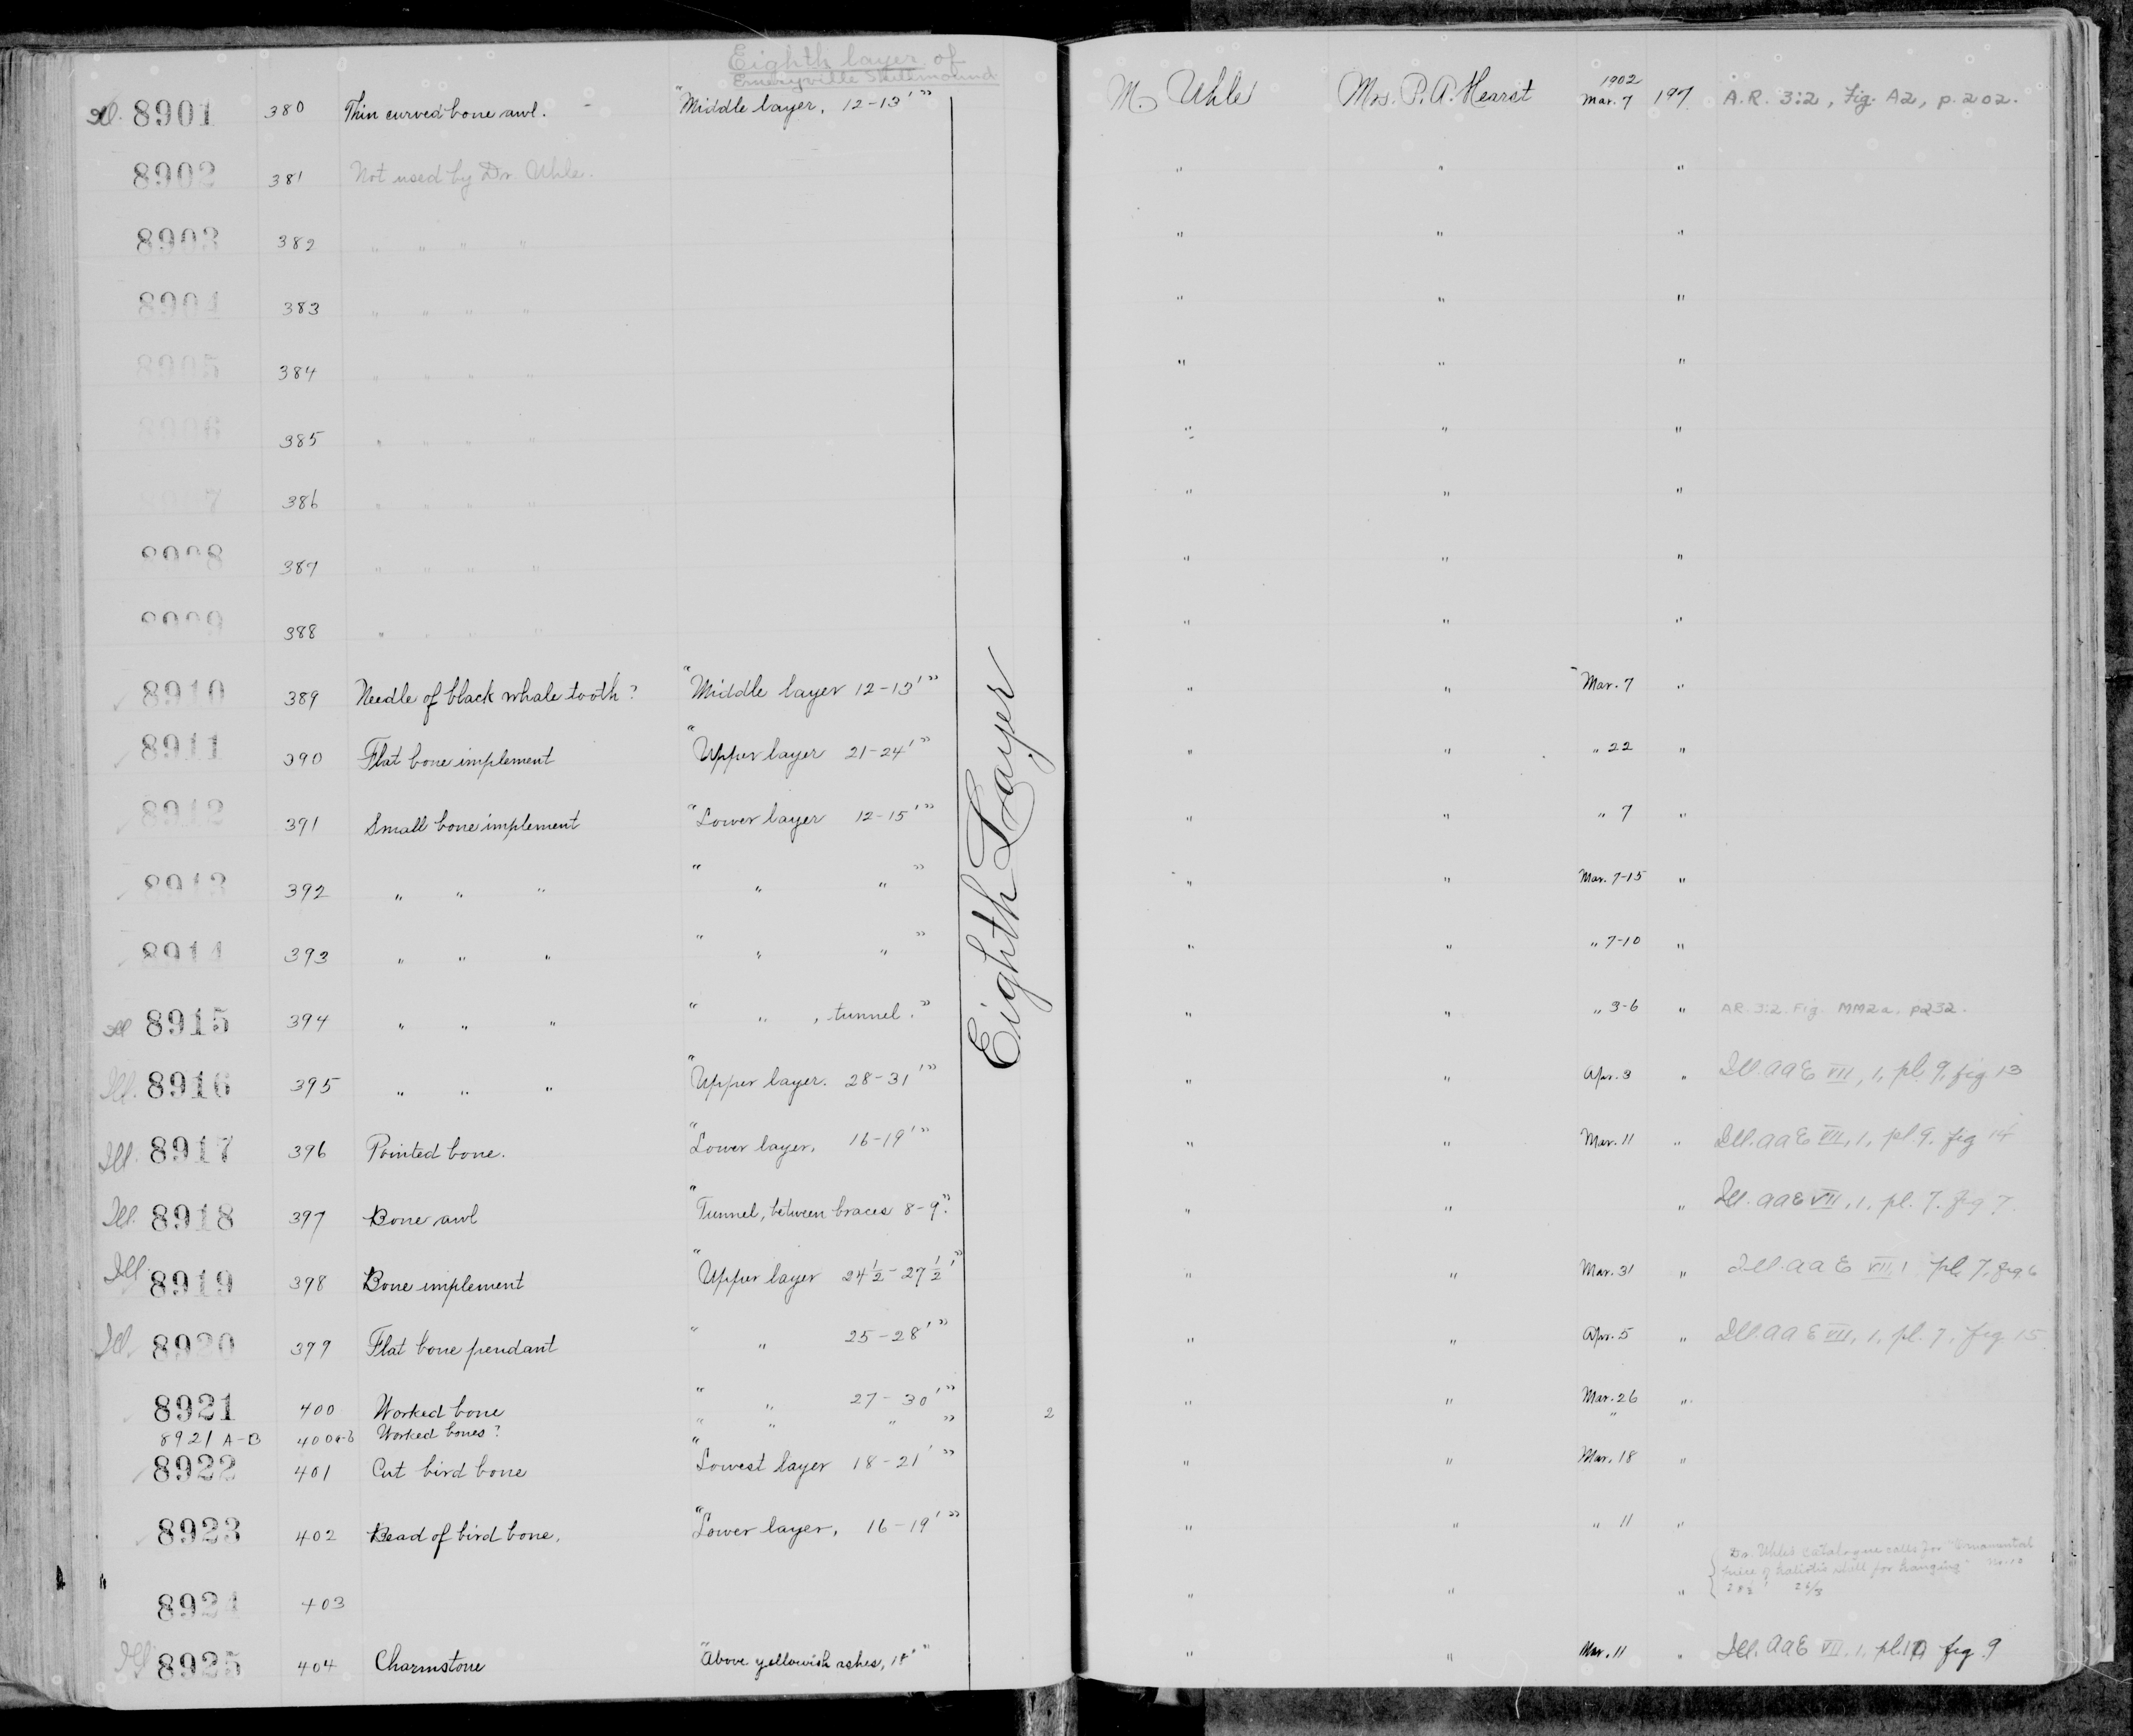 Eighth layer of
Emeryville Shellmound
Ill. 8901 380 Thin curved bone awl. - "Middle layer, 12-13'" M. Uhle Mrs. P. A. Hearst 1902 Mar. 7 197 A.R. 3:2, Fig. A2, p. 202.
8902 381 Not used by Dr. Uhle. " " "
8903 382 " " " " " " "
8904 383 " " " " " " "
8905 384 " " " " " " "
8906 385 " " " " " " "
8907 386 " " " " " " "
8908 387 " " " " " " "
8909 388 " " " " " " "
8910 389 Needle of black whale tooth? "Middle layer 12-13'" " " Mar. 7 "
8911 390 Flat bone implement "Upper layer 21-24'" " " " 22 "
8912 391 Small bone implement "Lower layer 12-15'" " " " 7 "
8913 392 " " " " " " " " " Mar. 7-15 "
8914 393 " " " " " " " " " " 7-10 "
Ill 8915 394 " " " " " , tunnel." " " " 3-6 " AR. 3:2. Fig. MM2a. p232.
Ill. 8916 395 " " " "Upper layer. 28-31'" " " Apr. 3 " Ill. AAE VII, 1, pl. 9, fig 13
Ill. 8917 396 Pointed bone. "Lower layer, 16-19'" " " Mar. 11 " Ill. AAE VII, 1, pl. 9, fig 14
Ill. 8918 397 Bone awl "Tunnel, between braces 8-9." " " " Ill. AAE VII, 1, pl. 7. fig 7.
Ill. 8919 398 Bone implement "Upper layer 24½-27½'" " " Mar. 31 " Ill. AAE VII, 1 pl. 7, fig 6
Ill. 8920 399 Flat bone pendant " " 25-28'" " " Apr. 5 " Ill. AAE VII, 1, pl. 7, fig. 15
8921 400 Worked bone " " 27-30'" 2 " " Mar. 26 "
8921 A-B 400a-b Worked bones? " " " " "
8922 401 Cut bird bone "Lowest layer 18-21'" " " Mar. 18 "
8923 402 Bead of bird bone. "Lower layer, 16-19'" " " " 11 "
8924 403 " " " Dr. Uhle's catalogue calls for "Ornamental
piece of haliotis shell for hanging"
Ill 8925 404 Charmstone "Above yellowish ashes, 18'" " " Mar. 11 " Ill. AAE VII, 1, fig. 9
Eighth Layer